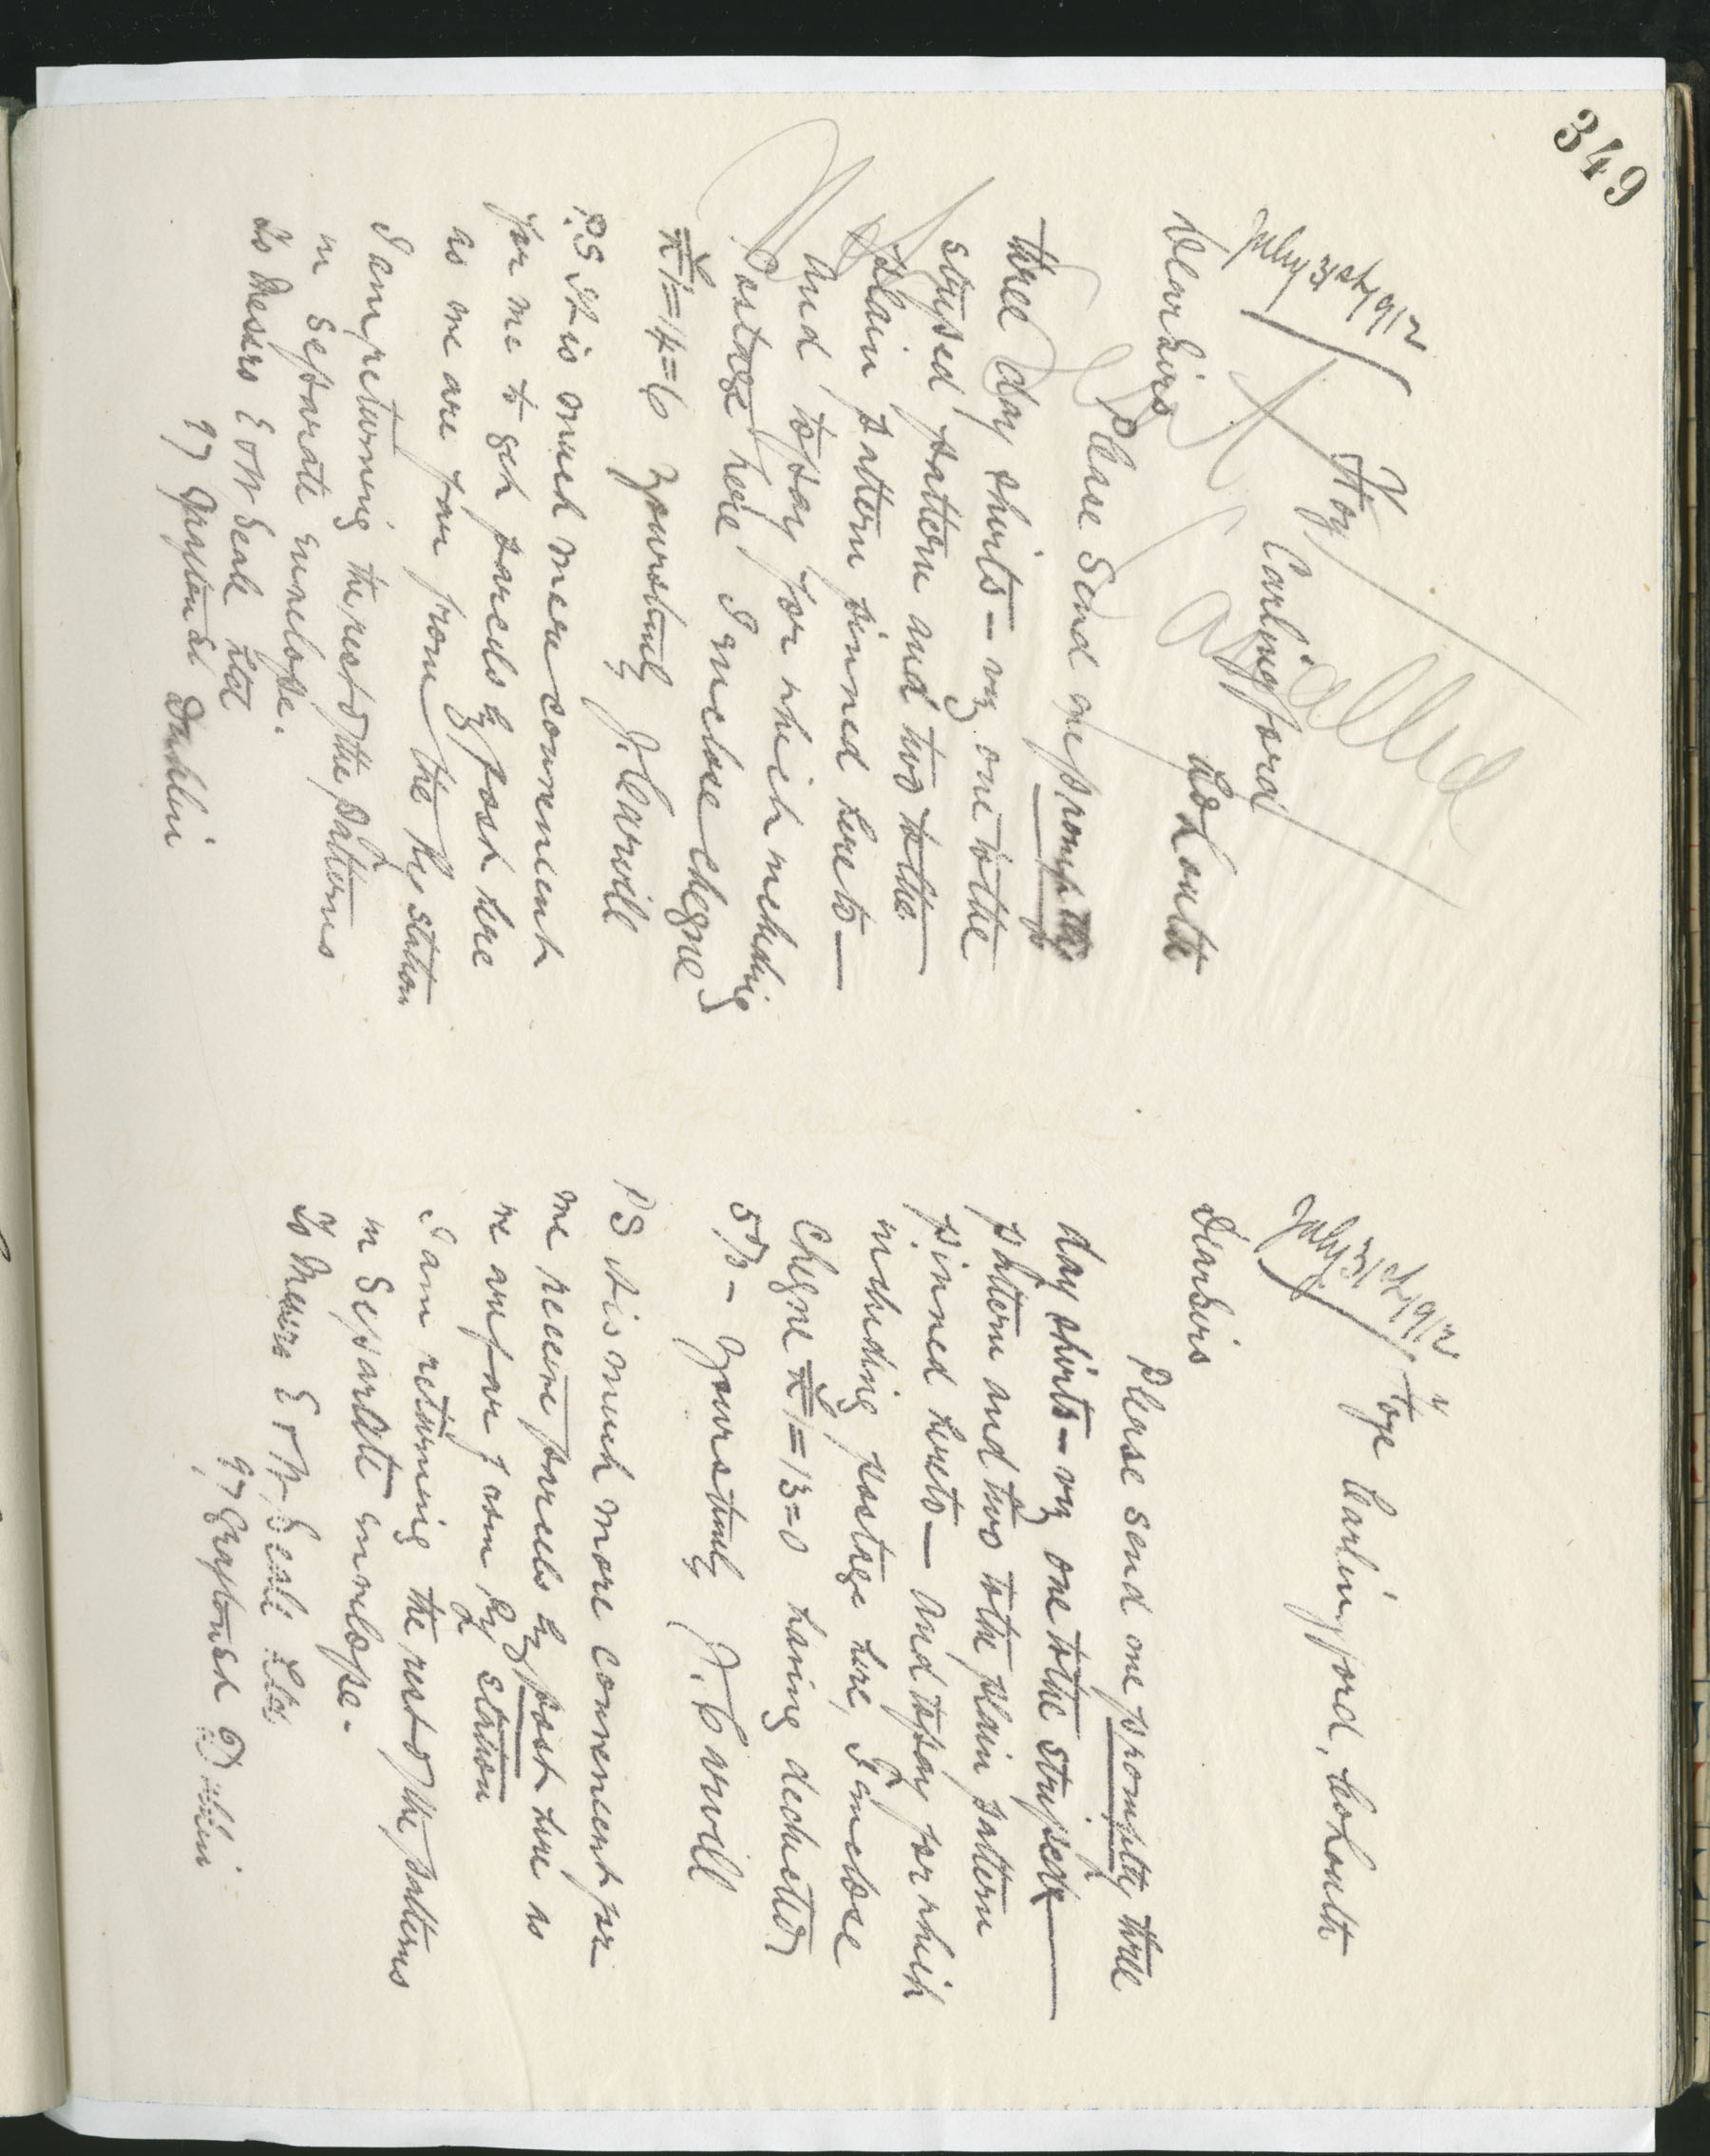 349
July 31st 1912
Foy
Carlingford
Co Louth
Not
Cancelled
Dear Sirs
Please send me promptly
three day shirts — viz one to the
striped pattern and two to the
plain pattern pinned hereto —
And to pay for which including
Postage here I enclose cheque
£1=14=6 Yours truly J. Carvill
P.S It is much more convenient
for me to get parcels by post here
as we are far from the Ry station
I am returning the rest of the patterns
in separate envelope.
To Messrs E & W Seale Ltd
97 Grafton St Dublin
July 31st 1912
Foye Carlingford, Co Louth
Dear Sirs
Please send me promptly three
day shirts — viz one to the striped
pattern and two to the plain pattern
pinned hereto — And to pay for which
including postage here, I enclose
cheque £1=13=0 having deducted
5% — Yours truly J. Carvill
PS it is much more convenient for
me receive parcels by post here as
we are far from Ry station
I am returning the rest of the patterns
in separate envelope.
To Messrs E & W Seale Ltd
97 Grafton St Dublin